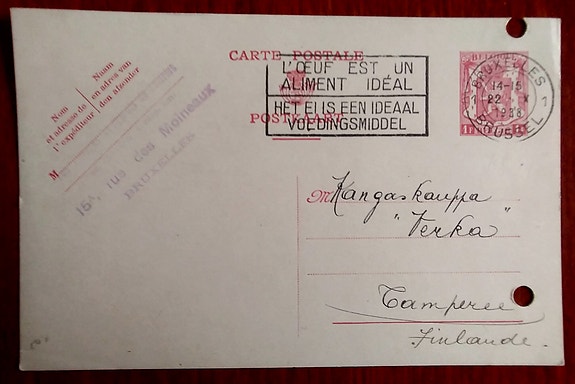 CARTE POSTALE
POSTKAART
L'ŒUF EST UN
ALIMENT IDÉAL
HET EI IS EEN IDEAAL
VOEDINGSMIDDEL
BRUXELLES
14-15
22 X
1938
BRUSSEL
1
1
Nom
et adresse de
l'expéditeur
Naam
en adres van
den afzender
M
15ᴬ, rue des Moineaux
BRUXELLES
M Kangaskauppa
"Verka"
Tamperee
Finlande.